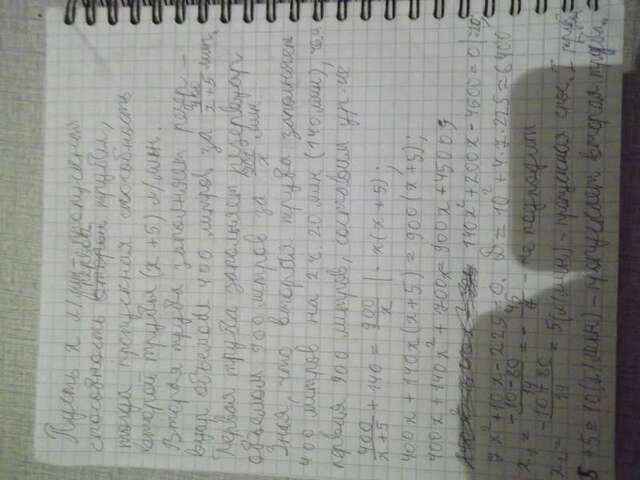 Пусть x л/мин пропускная
способность первой трубы,
тогда пропускная способность
второй трубы (x+5) л/мин.
Вторая труба заполняет резер-
вуар объемом 400 литров за 400/(x+5) мин.
Первая труба заполняет резервуар
объемом 900 литров за 900/x мин.
Зная, что вторая труба заполняет
400 литров на 2 ч. 20 мин (140 мин), чем
первая 900 литров, составим ур-ие
400/(x+5) + 140 = 900/x | · x(x+5);
400x + 140x(x+5) = 900(x+5);
400x + 140x² + 700x = 900x + 4500;
140x² + 200x - 4500 = 0 |:20;
7x² + 10x - 225 = 0. D = 10² + 4·7·225 = 6400;
x₁ = (-10-80)/14 = -45/7 - не подходит
x₂ = (-10+80)/14 = 5 (л/мин) - пропускная спос. I трубы
5+5=10 (л/мин) - пропускает вторая труба.